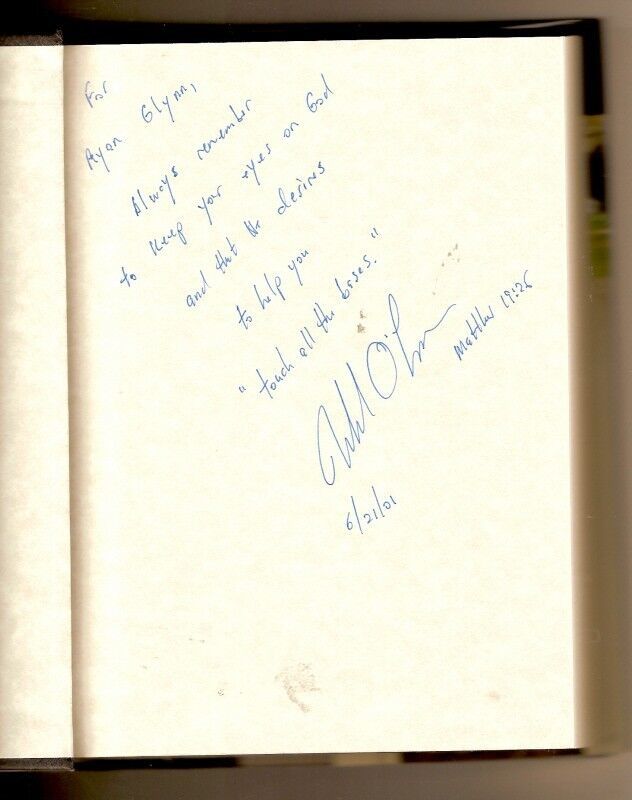 For
Ryan Glynn,
Always remember
to keep your eyes on God
and that He desires
to help you
"touch all the bases."
Matthew 19:26
6/21/01